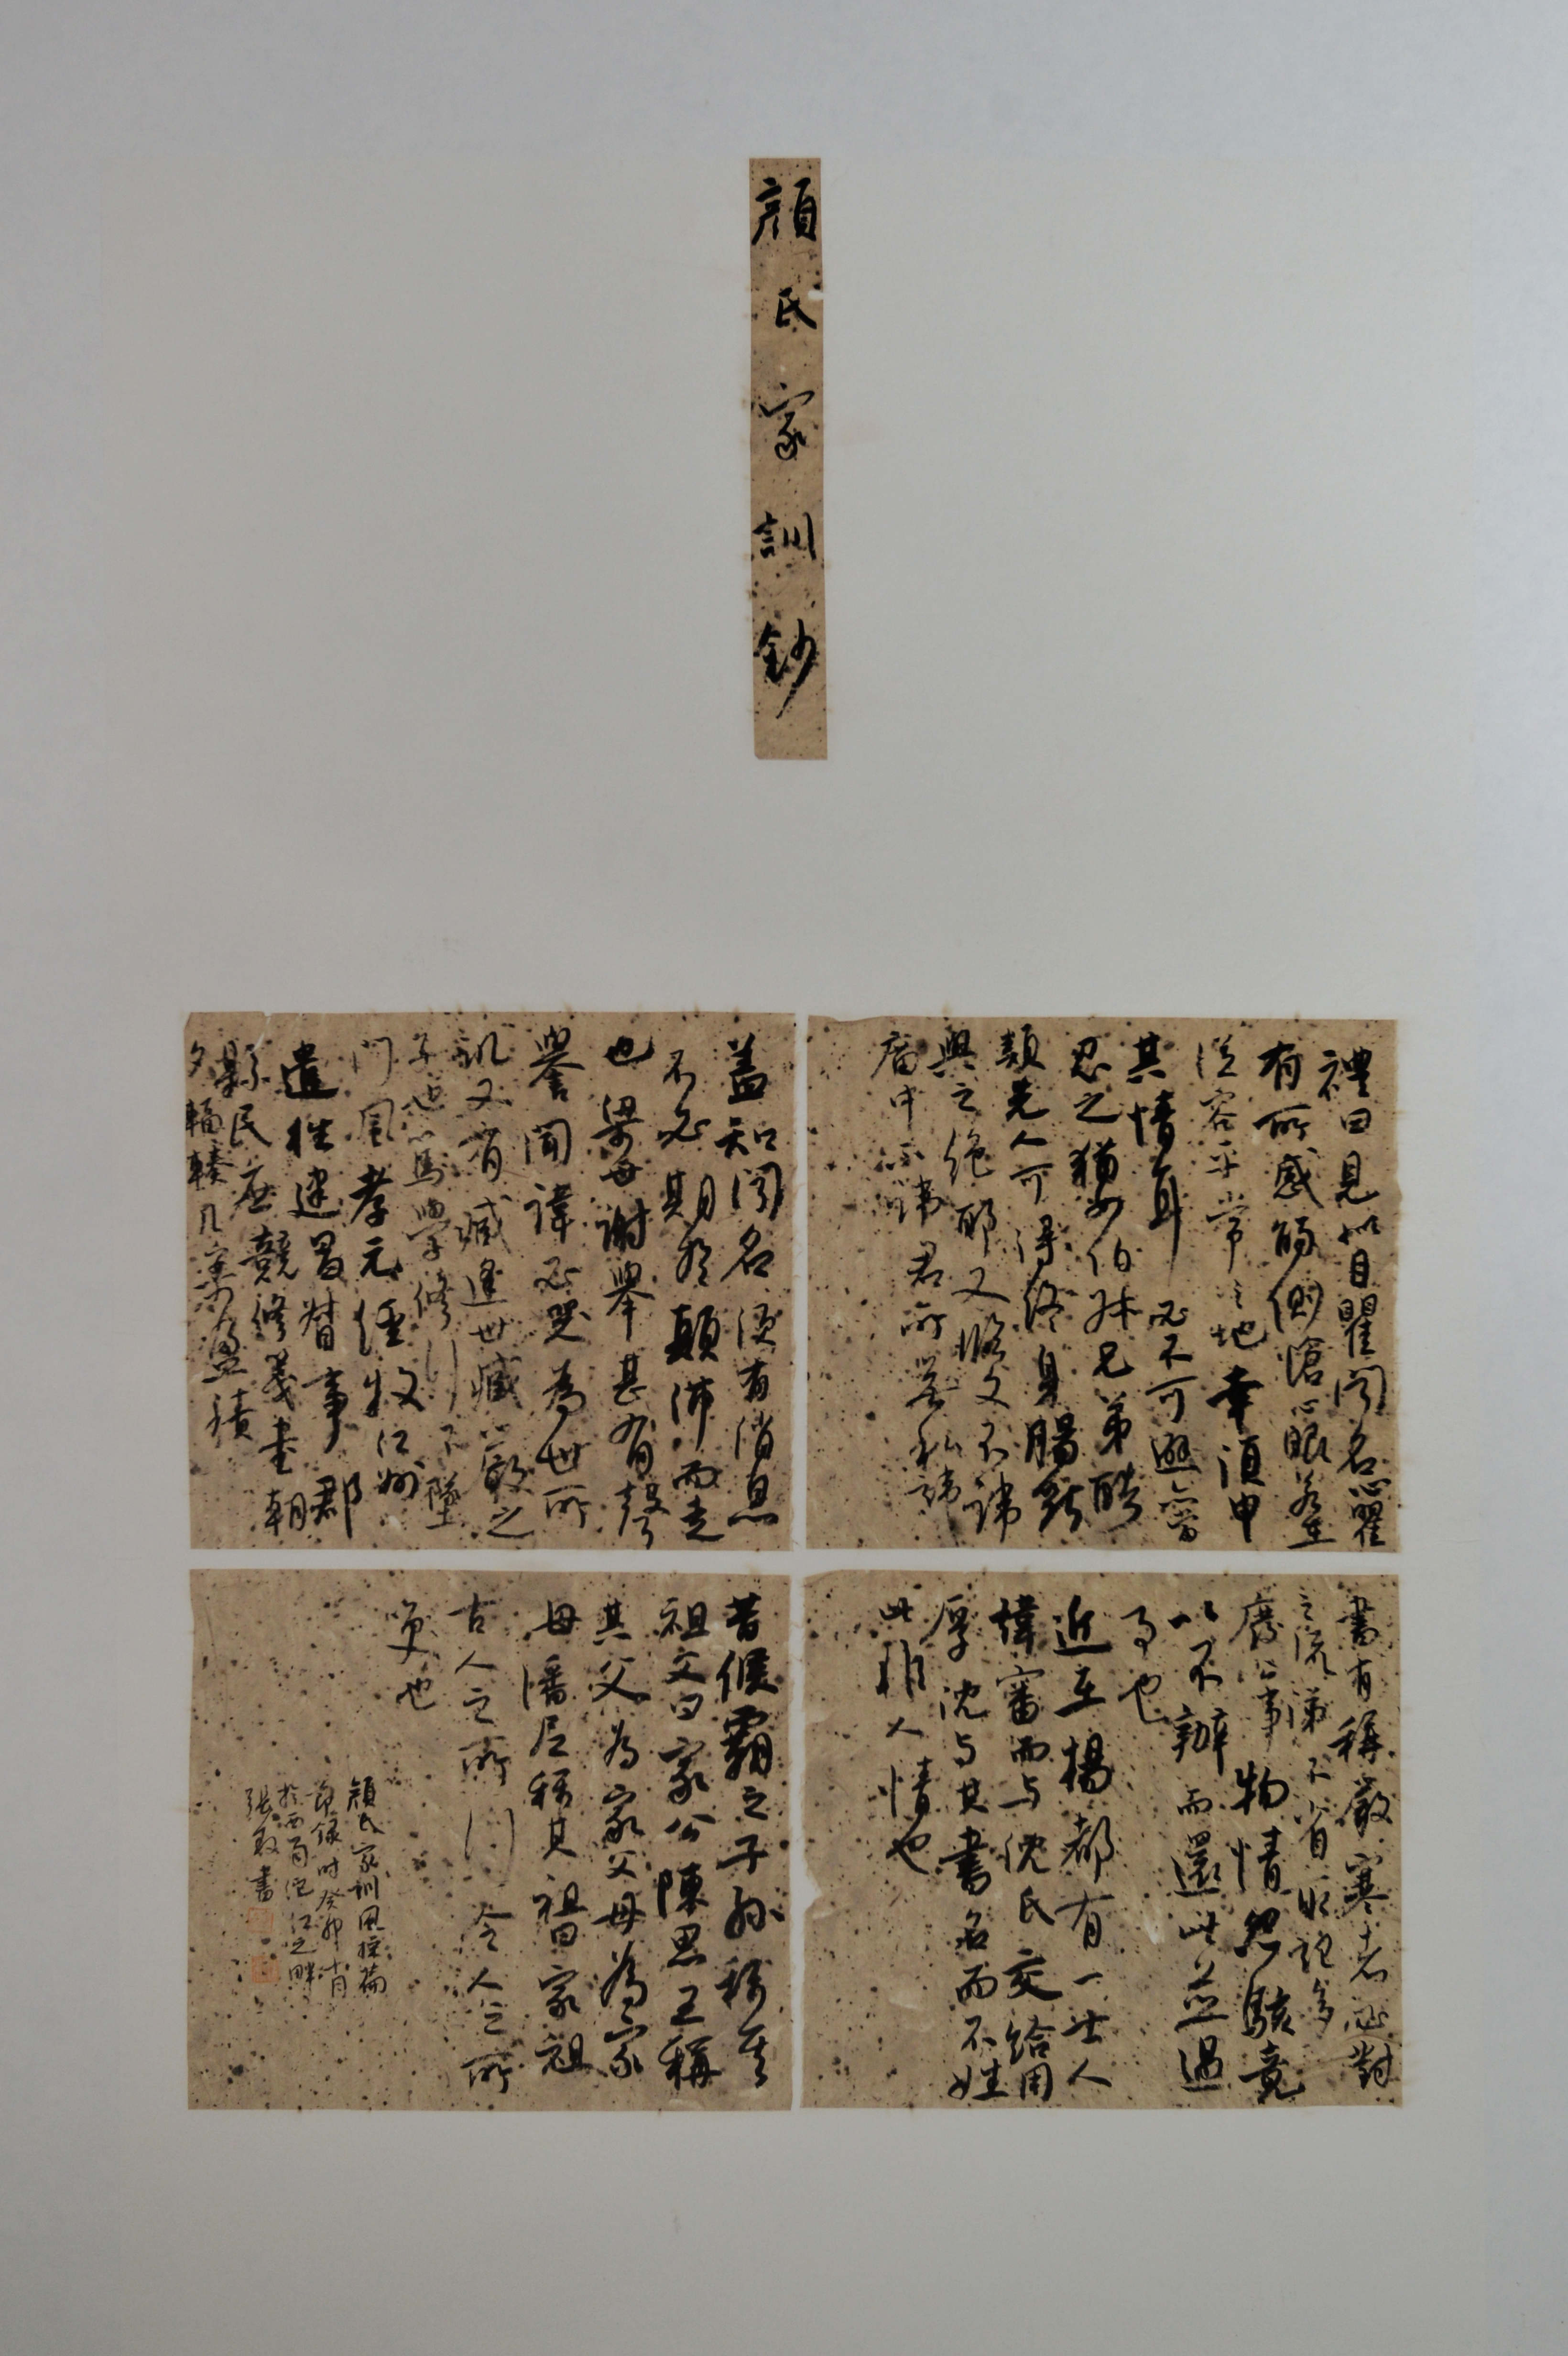 顏氏家訓鈔
禮曰見似目瞿聞名心瞿
有所感觸惻愴心眼若在
從容平常之地幸須申
其情耳必不可避亦當
忍之猶如伯叔兄弟酷
類先人可得終身腸斷
與之絕耶又臨文不諱
廟中不諱君所無私諱
蓋知聞名須有消息
不必期於顛沛而走
也梁世謝舉甚有聲
譽聞諱必哭為世所
譏又有臧逢世臧嚴之
子也篤學修行不墜
門風孝元經牧江州
遣往建昌督事郡
縣民庶競修箋書朝
夕輻輳几案盈積
書有稱嚴寒者必對
之流涕不省取記多
廢公事物情怨駭竟
以不辦而還此並過
事也
近在揚都有一士人
諱審而与沈氏交結周
厚沈与其書名而不姓
此非人情也
昔侯霸之子孫稱其
祖父曰家公陳思王稱
其父為家父母為家
母潘尼稱其祖曰家祖
古人之所行今人之所
笑也
顏氏家訓風操篇
節錄時癸卯十月
於西南沱江之畔
張敢書